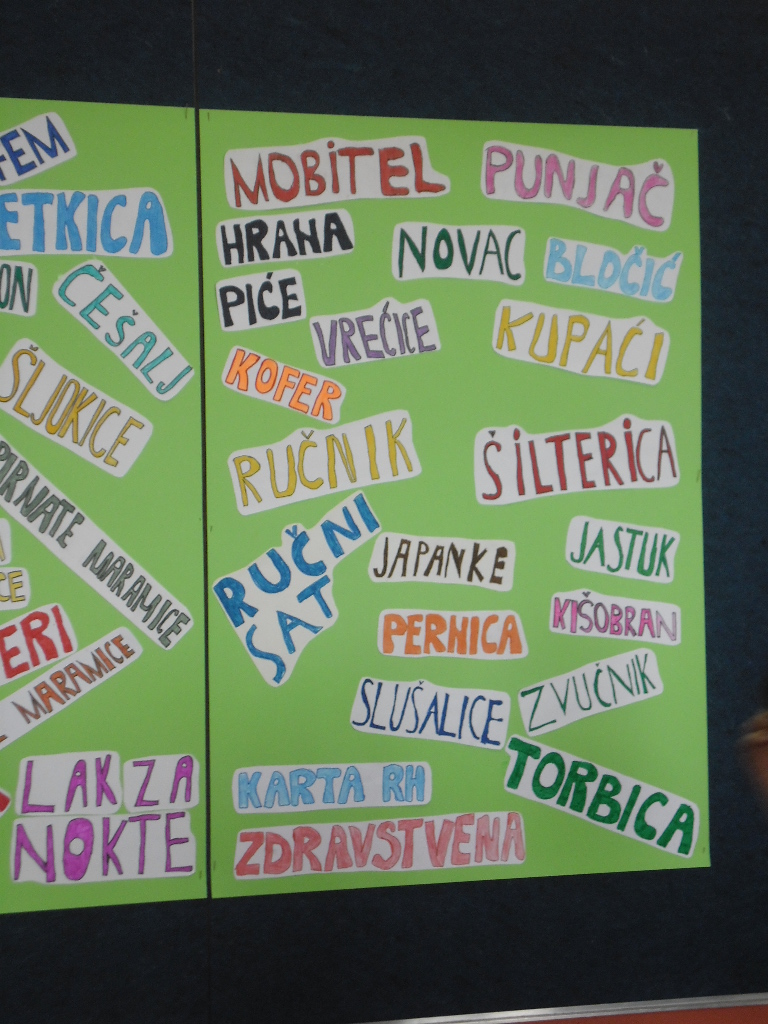 FEM
ETKICA
ON
ČEŠALJ
ŠLJOKICE
PIRNATE MARAMICE
CE
ERI
MARAMICE
LAK ZA
NOKTE
MOBITEL
PUNJAČ
HRANA
NOVAC
BLOČIĆ
PIĆE
VREĆICE
KUPAĆI
KOFER
RUČNIK
ŠILTERICA
RUČNI
SAT
JAPANKE
JASTUK
PERNICA
KIŠOBRAN
SLUŠALICE
ZVUČNIK
TORBICA
KARTA RH
ZDRAVSTVENA